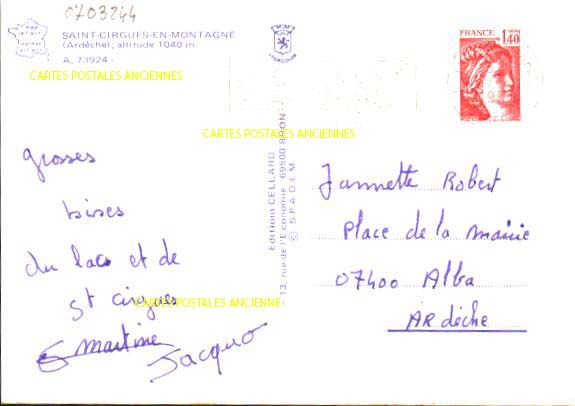 0703244
SAINT-CIRGUES-EN-MONTAGNE
(Ardèche), altitude 1040 m.
A. 73924 -
CARTES POSTALES ANCIENNES
FRANCE
1,40
CARTES POSTALES ANCIENNES
Editions CELLARD
- 13, rue de l'Economie 69500 BRON -
© S.P.A.D.E.M.
grosses
bises
du lac et de
St cirgues
CARTES POSTALES ANCIENNE
martine
Jacquo
Jannette Robert
Place de la mairie
07400 Alba
ARdèche